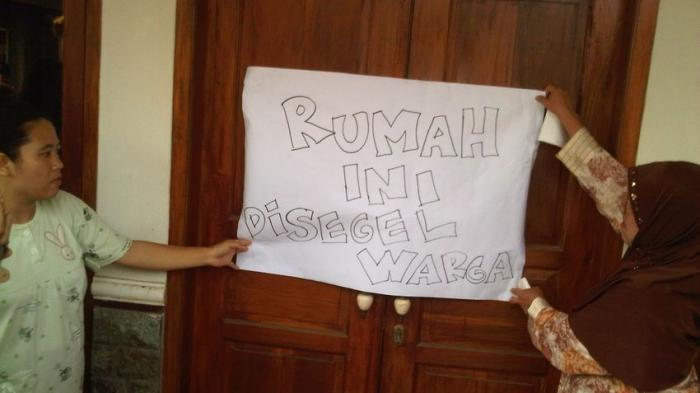 RUMAH
INI
DiSEGEL
WARGA